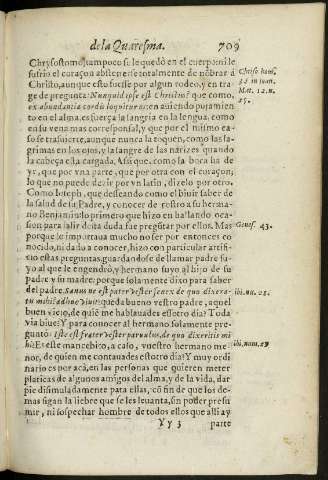 de la Quaresma.
709
Chrysostomo, tampoco se le quedò en el cuerpo, ni le
sufrio el coraçon abstenerse totalmente de nõbrar à
Christo, aunque esto fuesse por algun rodeo, y en tra
ge de pregunta: Nunquid ipse est Christus? que como,
ex abundantia cordis loquitur os: en auiendo pujamiento
en el alma, esfuerça la sangria en la lengua, como
en su vena mas correspõsal, y que por el mismo ca-
so se trasuierte, aunque nunca la toquen, como las la-
grimas en los ojos, y la sangre de las narizes quando
la cabeça està cargada. Assi que, como la boca ha de
yr, que por vna parte, que por otra con el coraçon;
lo que no puede dezir por vn latin, dizelo por otro.
Como Ioseph, que desseando como el biuir saber de
la salud de su Padre, y conocer de rostro a su herma-
no Benjamin: lo primero que hizo en hallando oca-
sion para salir desta duda fue pregũtar por ellos. Mas
porque le importaua mucho no ser por entonces co
nocido, ni dado a conocer, hizo con particular artifi-
cio estas preguntas, guardandose de llamar padre su-
yo al que le engendrò, y hermano suyo al hijo de su
padre y su madre; porque solamente dixo para saber
del padre. Sanus ne est pater vester senex de quo dixera-
tis mihi? adhuc viuit? queda bueno vestro padre, aquel
buen viejo, de quiẽ me hablauades estotro dia? Toda
via biue? Y para conocer al hermano solamente pre-
guntò: Iste est frater vester paruulus, de quo dixeritis mi
hi? Es este mancebico, a caso, vuestro hermano me-
nor, de quien me contauades estotro dia? Y muy ordi
nario es por acà, en las personas que quieren meter
platicas de algunos amigos del alma, y de la vida, dar
pie disimuladamente para ellas, cõ fin de que los de-
mas sigan la liebre que se les leuanta, sin poder presu
mir, ni sospechar hombre de todos ellos que alli ay
Yy 3 parte
Chriso homi.
Mat. 12. n.
Genes. 43.
ibi. nu. 28.
ibi. num. 29